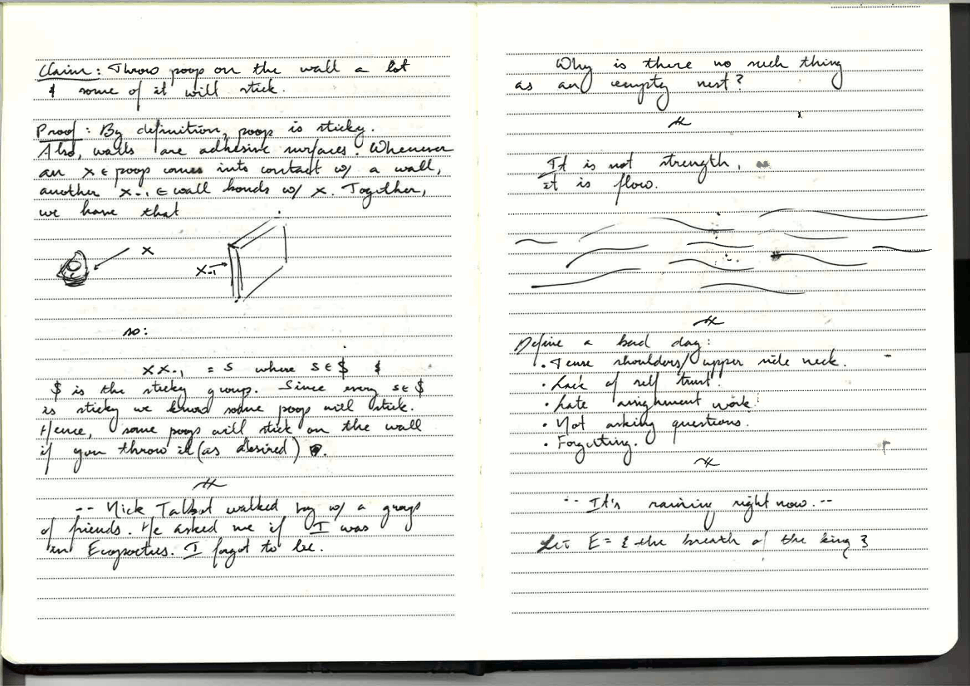 Claim: Throw poop on the wall a lot
& some of it will stick.
Proof: By definition, poop is sticky.
Also, walls are adhesive surfaces. Whenever
an x ∈ poop comes into contact w/ a wall,
another x-1 ∈ wall bonds w/ x. Together,
we have that
x
x-1
so:
xx-1 = s where s ∈ $ &
$ is the sticky group. Since every s ∈ $
is sticky we know some poop will stick.
Hence, some poop will stick on the wall
if you throw it (as desired)
-- Nick Talbot walked by w/ a group
of friends. He asked me if I was
in Ecopoetics. I forgot to be.
Why is there no such thing
as an empty nest?
It is not strength,
it is flow.
Define a bad day:
• Tense shoulders/upper side neck.
• Lack of self trust!
• Late assignment work!
• Not asking questions.
• Forgetting.
-- It's raining right now. --
Let E = { the breath of the king }